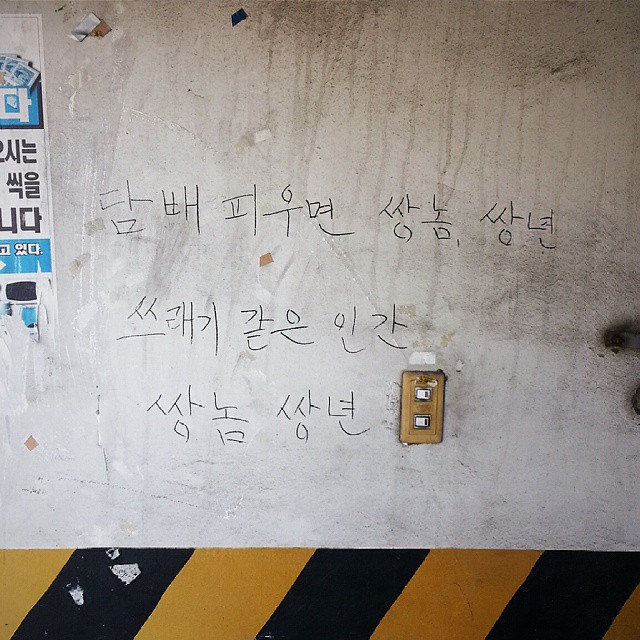 오시는
씩을
니다
고 있다.
담배 피우면 쌍놈, 쌍년
쓰래기 같은 인간
쌍놈 쌍년